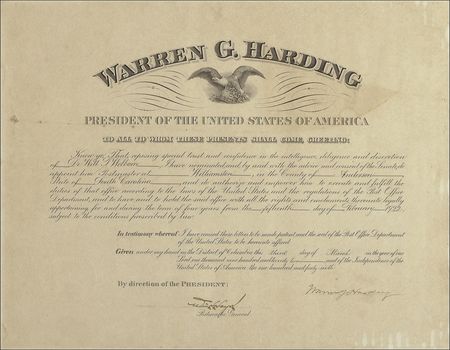 WARREN G. HARDING
PRESIDENT OF THE UNITED STATES OF AMERICA
TO ALL TO WHOM THESE PRESENTS SHALL COME, GREETING:
Know ye, That, reposing special trust and confidence in the intelligence, diligence, and discretion
of I have nominated, and, by and with the advice and consent of the Senate, do
appoint him Postmaster at Williamston, in the County of Anderson
State of South Carolina, and do authorize and empower him to execute and fulfill the
duties of that office according to the laws of the United States and the regulations of the Post Office
Department, and to have and to hold the said office, with all the rights and emoluments thereunto legally
appertaining, for and during the term of four years from the fifteenth day of February
subject to the conditions prescribed by law.
In testimony whereof I have caused these letters to be made patent and the seal of the Post Office Department
of the United States to be hereunto affixed.
Given under my hand in the District of Columbia the third day of March in the year of our
Lord one thousand nine hundred and twenty and of the Independence of the
United States of America the one hundred and forty-sixth.
By direction of the PRESIDENT:
Warren G. Harding
Postmaster General